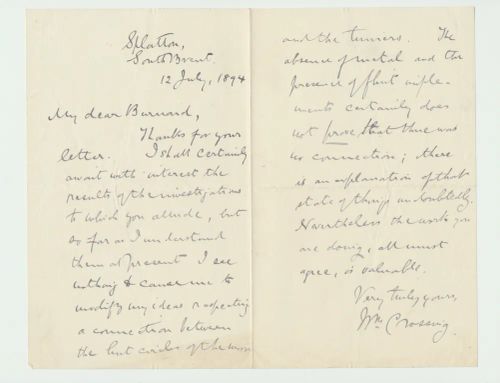 Splatton,
South Brent.
12 July, 1894
My dear Burnard,
Thanks for your
letter. I shall certainly
await with interest the
results of the investigations
to which you allude, but
so far as I understand
them at present I see
nothing to cause me to
modify my ideas respecting
a connection between
the hut circles of the moor
and the tinners. The
absence of metal and the
presence of flint imple-
ments certainly does
not prove that there was
no connection; there
is an explanation of that
state of things undoubtedly.
Nevertheless the work you
are doing, all must
agree, is valuable.
Very truly yours,
Wm Crossing.